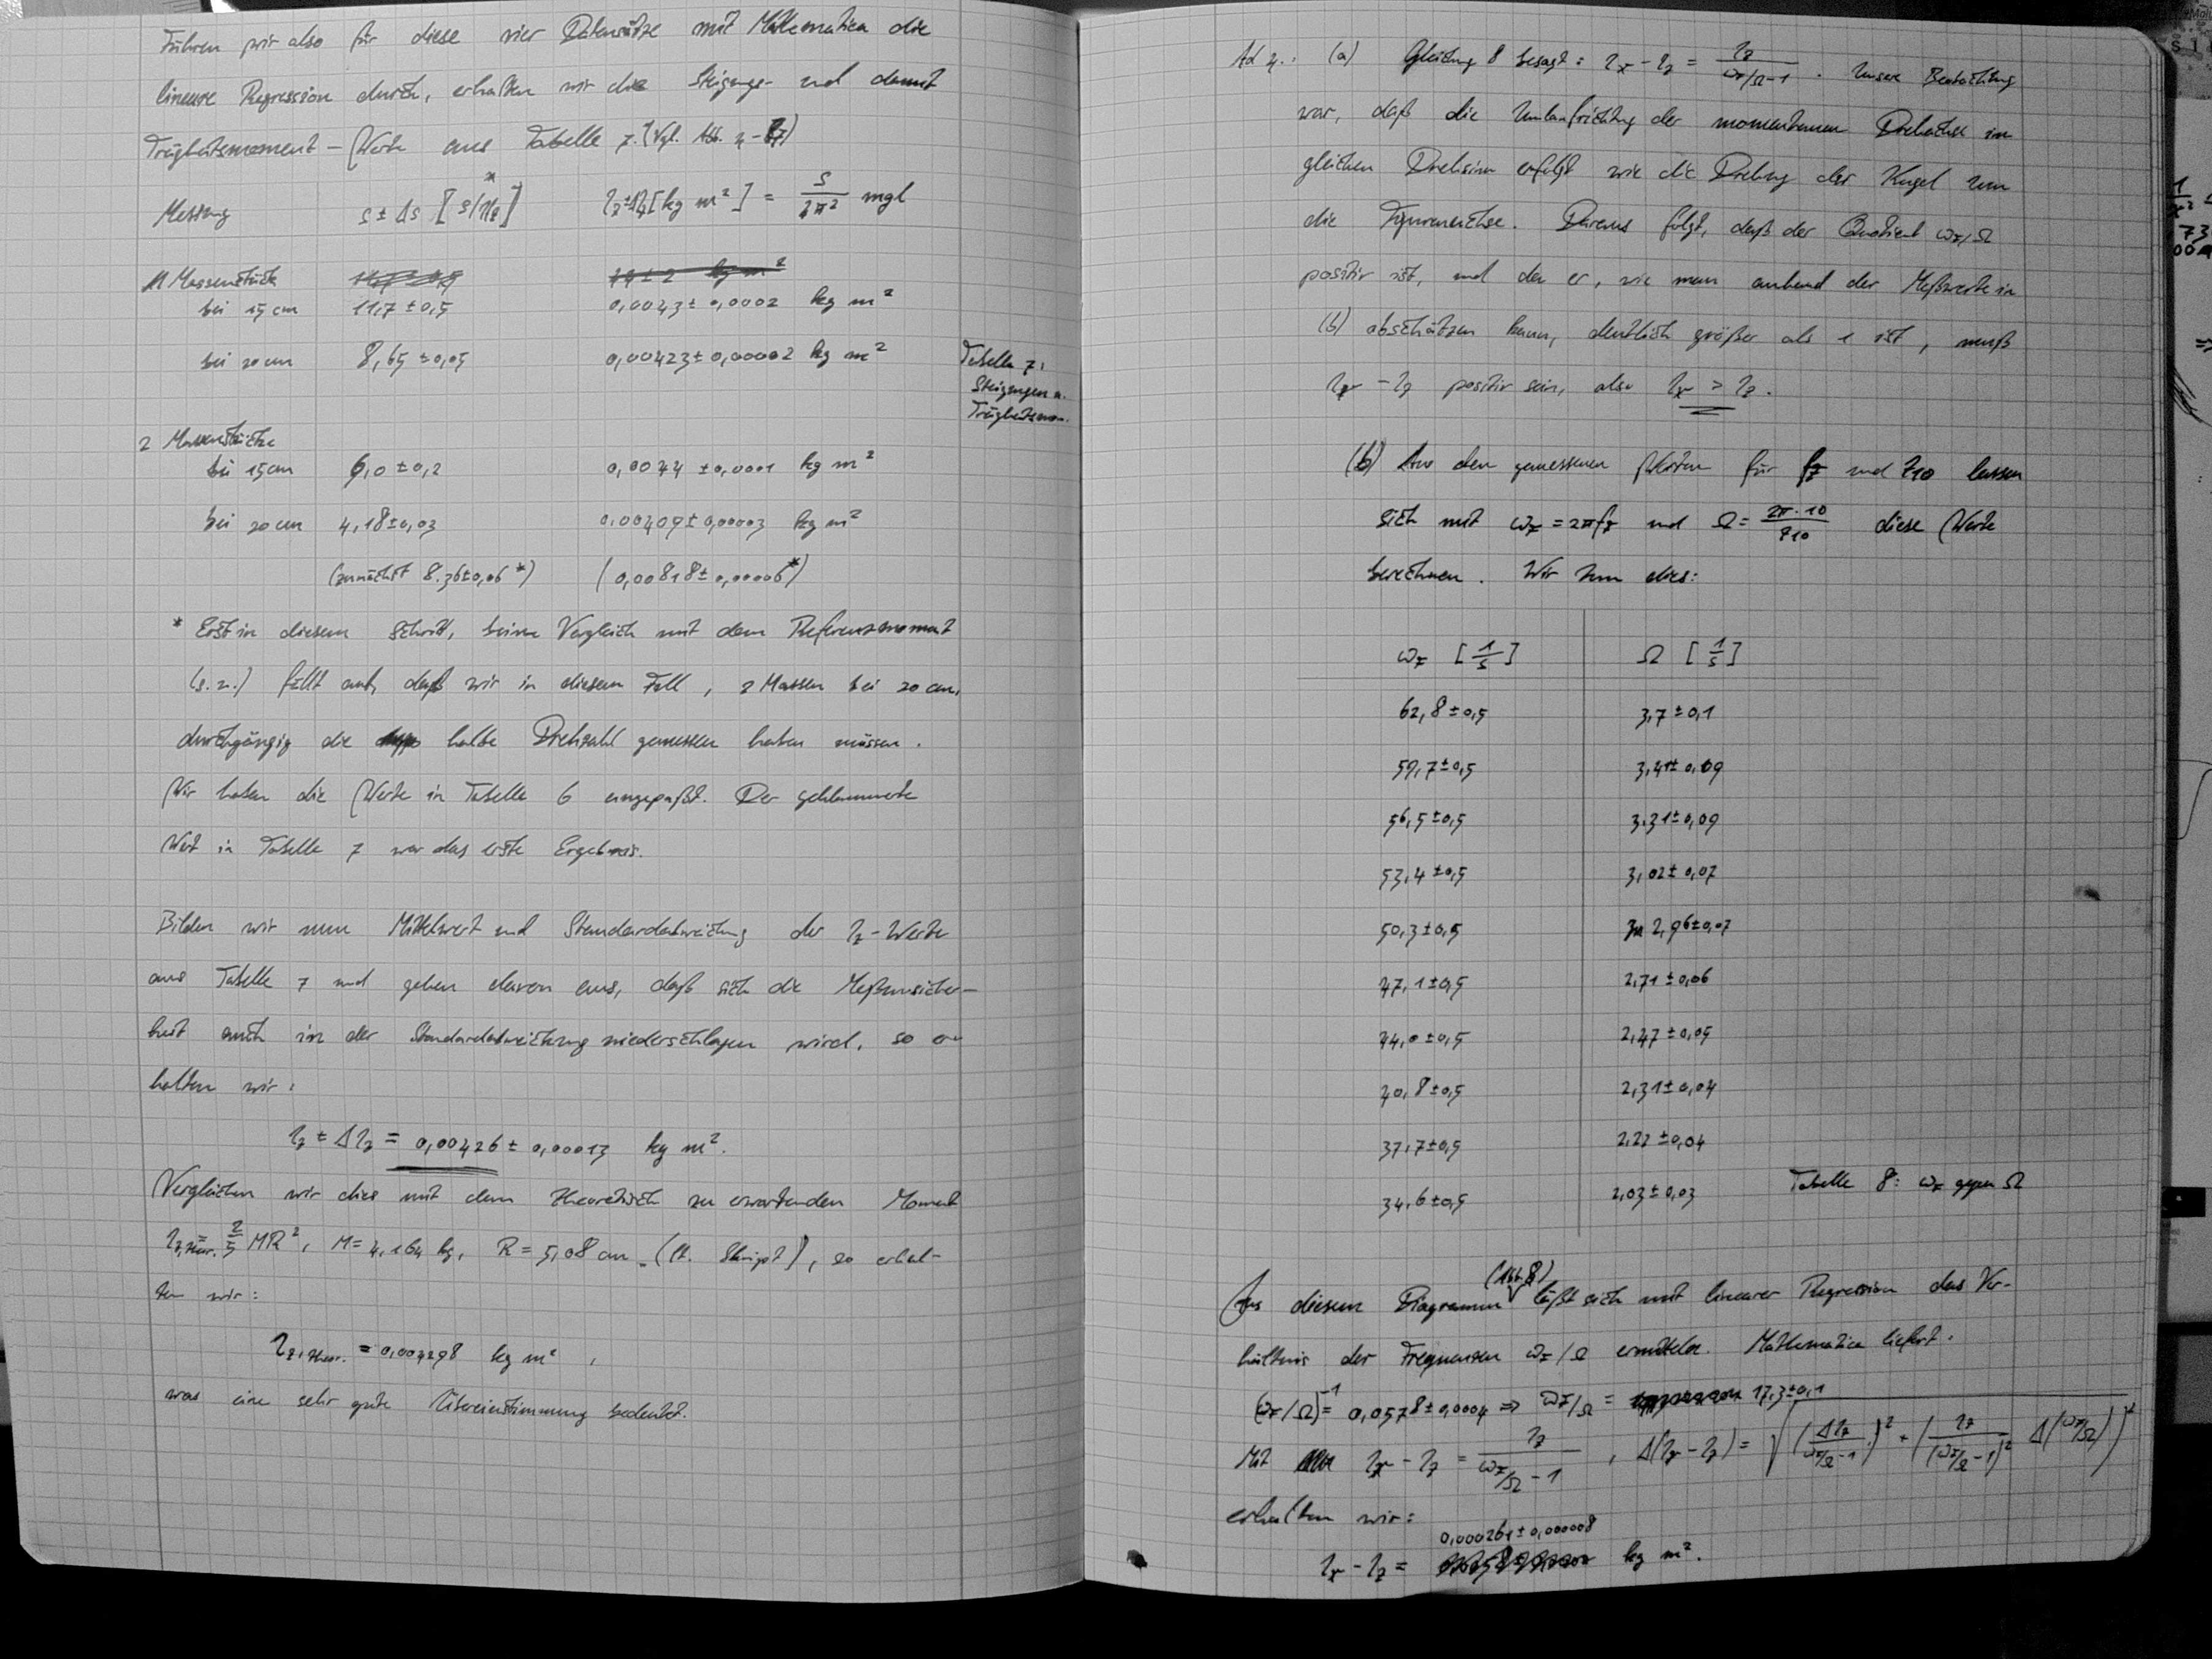 Führen wir also für diese vier Datensätze mit Mathematica die
lineare Regression durch, erhalten wir die Steigungs- und damit
Trägheitsmoment-Werte aus Tabelle 7. (Vgl. Abb. 4-7)
Messung s ± Δs [s/Hz]* I_z ± ΔI_z [kg m²] = s/2π² mgl
1 Massenstück
bei 15 cm 11,7 ± 0,5 0,0043 ± 0,0002 kg m²
bei 20 cm 8,65 ± 0,05 0,00423 ± 0,00002 kg m²
Tabelle 7:
Steigungen u.
Trägheitsmom.
2 Massenstücke
bei 15 cm 6,0 ± 0,2 0,0044 ± 0,0001 kg m²
bei 20 cm 4,18 ± 0,03 0,00409 ± 0,00003 kg m²
(zunächst 8.36 ± 0,06 *) (0,00818 ± 0,00006 *)
* Erst in diesem Schritt, beim Vergleich mit dem Referenzmoment
(s.u.) fällt auf, daß wir in diesem Fall, 2 Massen bei 20 cm,
durchgängig die halbe Drehzahl gemessen haben müssen.
Wir haben die Werte in Tabelle 6 angepaßt. Der geklammerte
Wert in Tabelle 7 war das erste Ergebnis.
Bilden wir nun Mittelwert und Standardabweichung der I_z-Werte
aus Tabelle 7 und gehen davon aus, daß sich die Meßunsicher-
heit auch in der Standardabweichung niederschlagen wird, so er-
halten wir:
I_z ± ΔI_z = 0,00426 ± 0,00013 kg m².
Vergleichen wir dies mit dem theoretisch zu erwartenden Moment
I_z,theor. = 2/5 MR², M = 4,164 kg, R = 5,08 cm (lt. Skript), so erhal-
ten wir:
I_z,theor. = 0,004298 kg m²,
was eine sehr gute Übereinstimmung bedeutet.
Ad 4.: (a) Gleichung 8 besagt: I_x - I_z = I_z / (ω_F/Ω - 1). Unsere Beobachtung
war, daß die Umlaufrichtung der momentanen Drehachse im
gleichen Drehsinn erfolgt wie die Drehung der Kugel um
die Figurenachse. Daraus folgt, daß der Quotient ω_F/Ω
positiv ist, und da er, wie man anhand der Meßwerte in
(b) abschätzen kann, deutlich größer als 1 ist, muß
I_x - I_z positiv sein, also I_x > I_z.
(b) Aus den gemessenen Werten für f_F und T10 lassen
sich mit ω_F = 2πf_F und Ω = 2π·10/T10 diese Werte
berechnen. Wir tun dies:
ω_F [1/s] Ω [1/s]
62,8 ± 0,5 3,7 ± 0,1
59,7 ± 0,5 3,41 ± 0,09
56,5 ± 0,5 3,31 ± 0,09
53,4 ± 0,5 3,02 ± 0,07
50,3 ± 0,5 2,96 ± 0,07
47,1 ± 0,5 2,71 ± 0,06
44,0 ± 0,5 2,47 ± 0,05
40,8 ± 0,5 2,31 ± 0,04
37,7 ± 0,5 2,22 ± 0,04
34,6 ± 0,5 2,03 ± 0,03
Tabelle 8: ω_F gegen Ω
Aus diesem Diagramm (Abb. 8) läßt sich mit linearer Regression das Ver-
hältnis der Frequenzen ω_F/Ω ermitteln. Mathematica liefert:
(ω_F/Ω)⁻¹ = 0,0578 ± 0,0004 ⇒ ω_F/Ω = 17,3 ± 0,1
Mit I_x - I_z = I_z / (ω_F/Ω - 1), Δ(I_x - I_z) = √((ΔI_z / (ω_F/Ω - 1))² + (I_z / (ω_F/Ω - 1)² Δ(ω_F/Ω))²)
erhalten wir:
I_x - I_z = 0,000261 ± 0,000008 kg m².